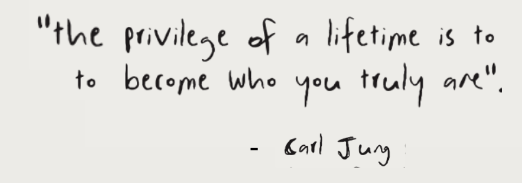 "the privilege of a lifetime is to
to become who you truly are".
- Carl Jung